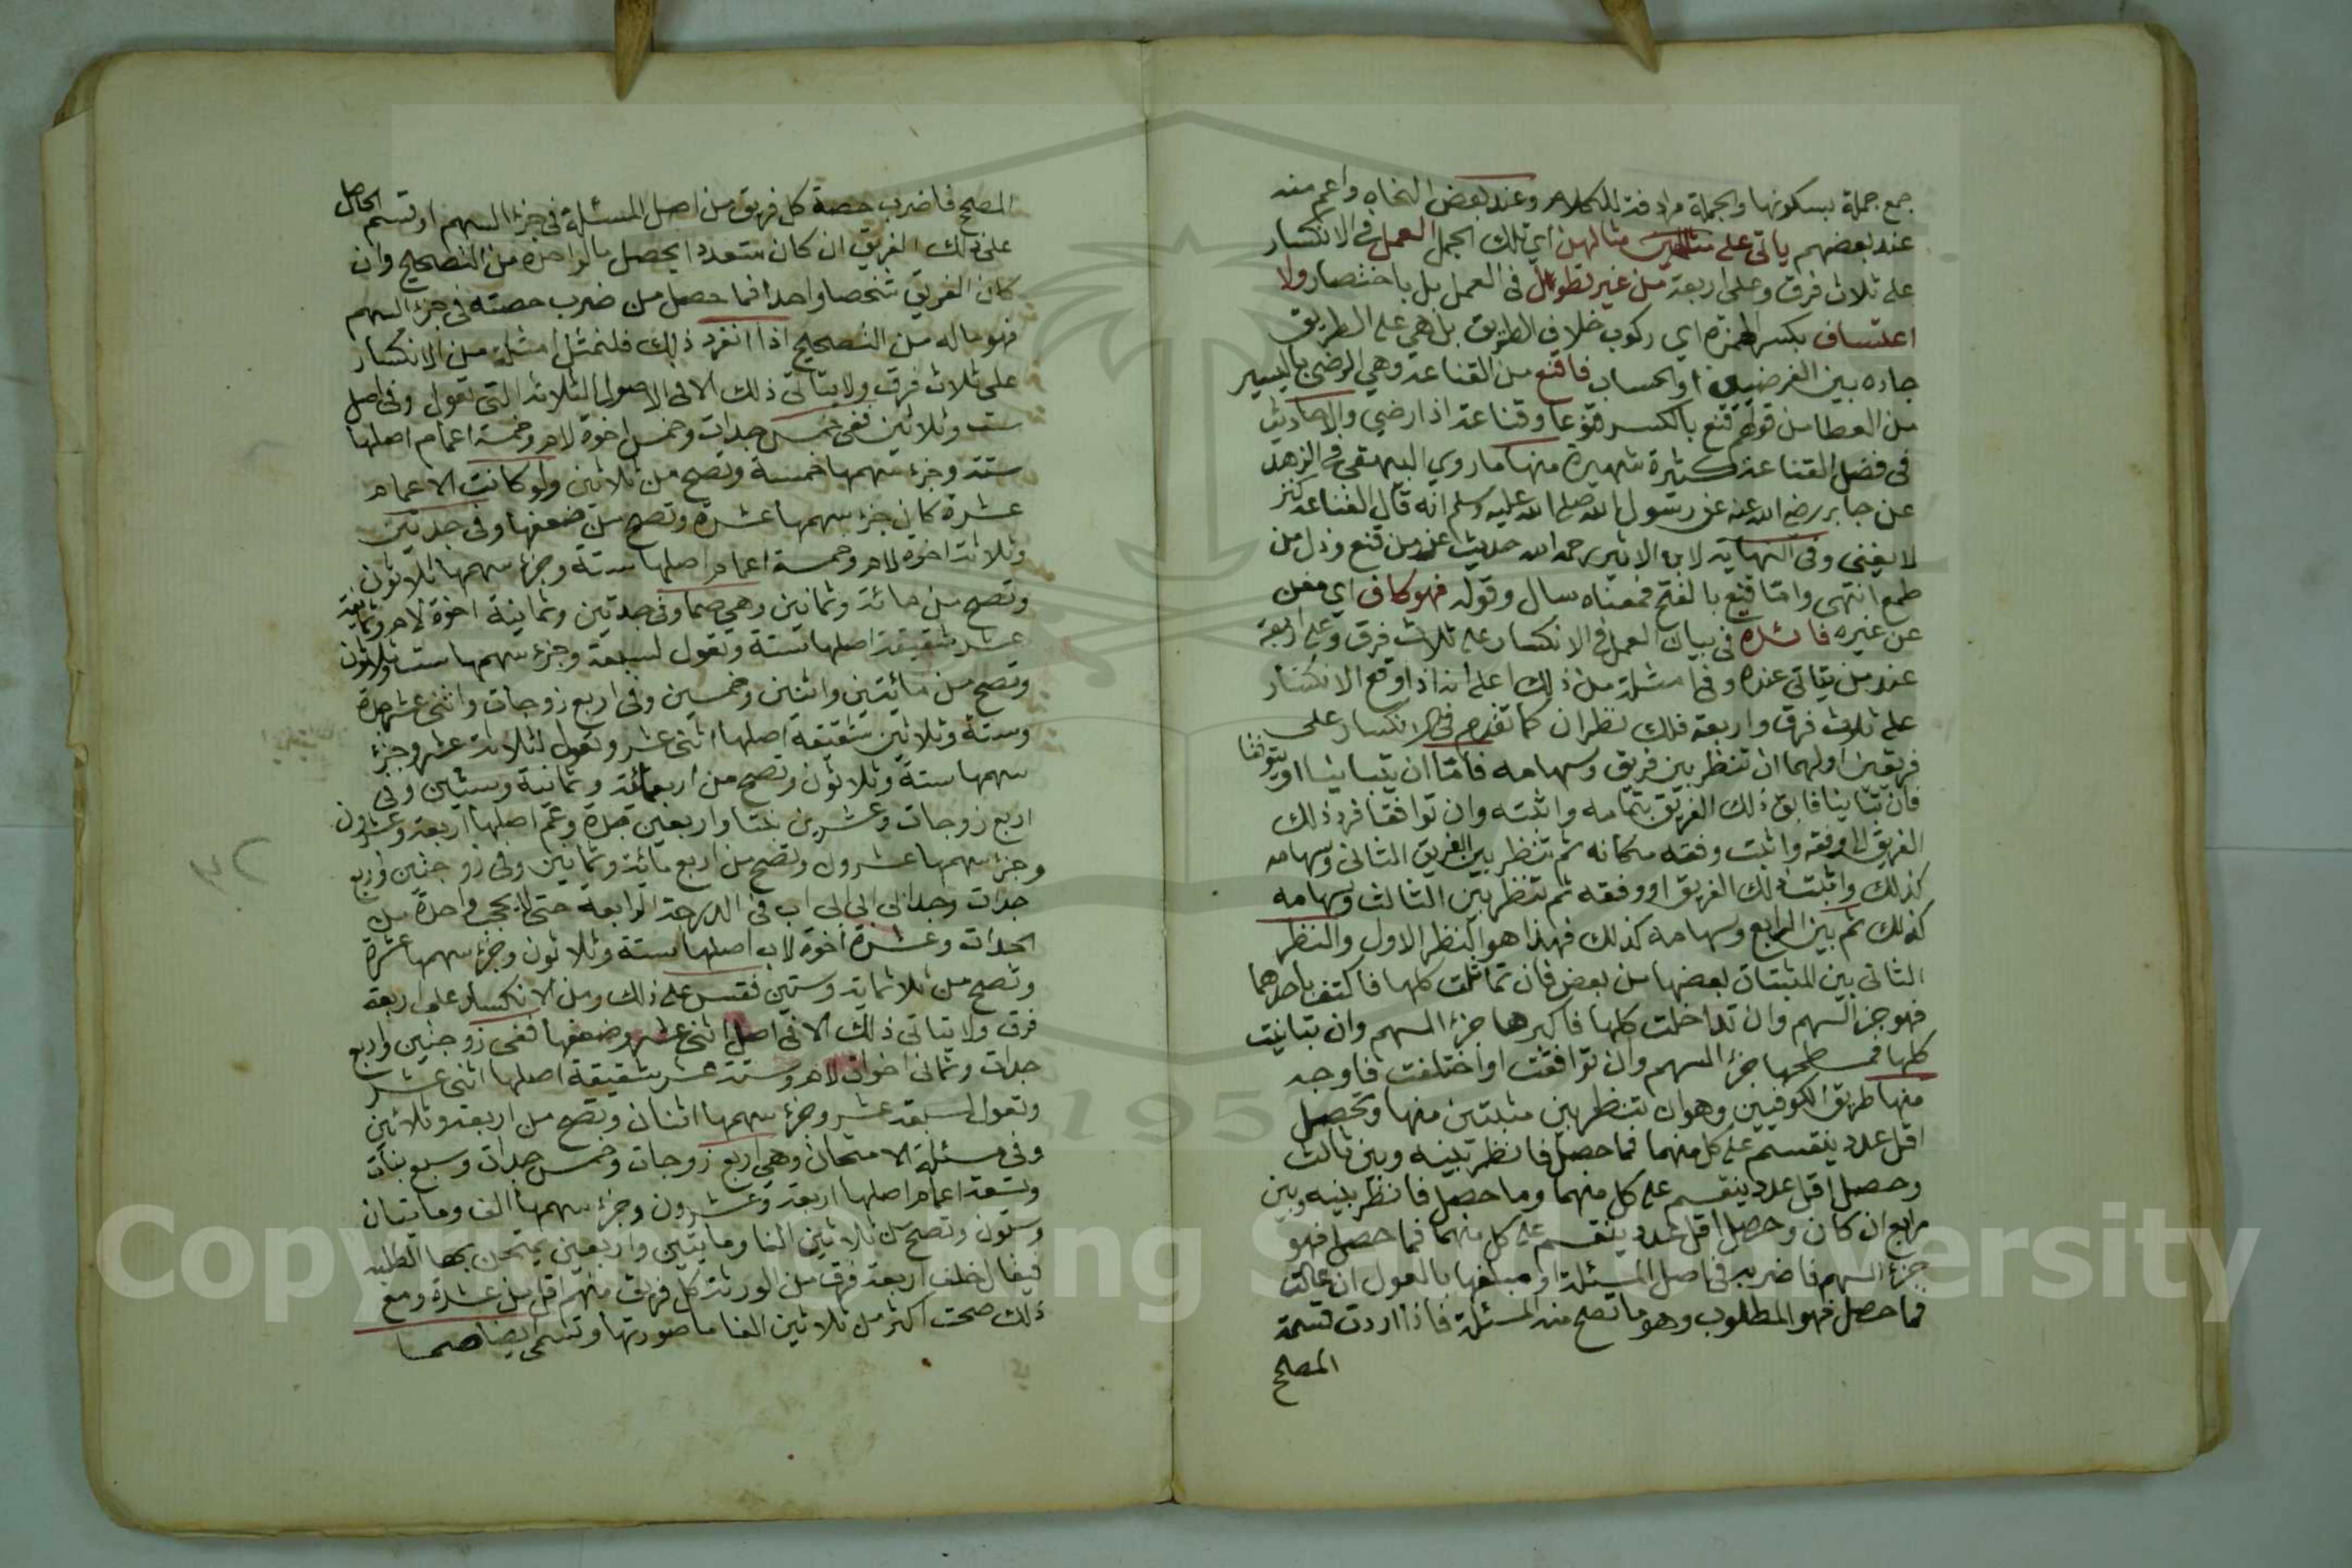 جمع جملة بسكونها والجملة مرادفة للكلام وعند بعض النحاه واعم منه
عند بعضهم ياتي على مثالهن اي تلك الجمل العمل في الانكسار
على ثلاث فرق وعلى اربعة من غير تطويل في العمل بل باختصار ولا
اعتساف بكسر الهمزة اي ركوب خلاف الطريق بل هي على الطريق
جاده بين الفرضيين او الحساب فاقنع من القناعة وهي الرضى باليسير
من العطا من قولهم قنع بالكسر قنوعا وقناعة اذا رضي والاحاديث
في فضل القناعة كثيرة شهيرة منها ما روي البيهقي في الزهد
عن جابر رضي الله عنه عن رسول الله صلى الله عليه وسلم انه قال القناعة كنز
لا يفنى وفي النهاية لابن الاثير رحمه الله حديث اعز من قنع وذل من
طمع انتهى واما قنع بالفتح فمعناه سال وقوله فهو كاف اي مغن
عن غيره فائدة في بيان العمل في الانكسار على ثلاث فرق وعلى اربعة
عند من يتاتى عنده وفي امثلة من ذلك اعلم انه اذا وقع الانكسار
على ثلاث فرق واربعة فلك نظران كما تقدم في الانكسار على
فريقين اولهما ان تنظر بين فريق وسهامه فاما ان يتباينا او يتوافقا
فان تباينا فابق ذلك الفريق بتمامه واثبته وان توافقا فرد ذلك
الفريق الى وفقه واثبت وفقه مكانه ثم تنظر بين الفريق الثاني وسهامه
كذلك واثبت ذلك الفريق او وفقه ثم تنظر بين الثالث وسهامه
كذلك ثم بين الرابع وسهامه كذلك فهذا هو النظر الاول والنظر
الثاني بين المثبتات بعضها من بعض فان تماثلت كلها فاكتف باحدهما
فهو جزء السهم وان تداخلت كلها فاكبرها جزء السهم وان تباينت
كلها فمسطحها جزء السهم وان توافقت او اختلفت فاوجه
منها طريق الكوفيين وهو ان تنظر بين مثبتين منها وتحصل
اقل عدد ينقسم على كل منهما فما حصل فانظر بينه وبين ثالث
وحصل اقل عدد ينقسم على كل منهما وما حصل فانظر بينه وبين
رابع ان كان وحصل اقل عدد ينقسم على كل منهما فما حصل فهو
جزء السهم فاضربه في اصل المسئلة او مبلغها بالعول ان عالت
فما حصل فهو المطلوب وهو ما تصح منه المسئلة فاذا اردت قسمة
المصلح
المصلح فاضرب حصة كل فريق من اصل المسئلة في جزء السهم او تسم الحاصل
على ذلك الفريق ان كان متعددا يحصل ما لواحده من التصحيح وان
كان الفريق شخصا واحدا فما حصل من ضرب حصته في جزء السهم
فهو ماله من التصحيح اذا انفرد ذلك فلنمثل امثلة من الانكسار
على ثلاث فرق ولا يتاتى ذلك الا في الاصول الثلاثة التي تعول وفي اصل
ست وثلاثين ففي خمس جدات وخمس اخوة لام وخمسة اعمام اصلها
ستة وجزء سهمها خمسة وتصح من ثلاثين ولو كانت الاعمام
عشرة كان جزء سهمها عشرة وتصح من ضعفها وفي جدتين
وثلاثة اخوة لام وخمسة اعمام اصلها ستة وجزء سهمها ثلاثون
وتصح من مائة وثمانين وهي صما وفي جدتين وثمانية اخوة لام وثمانية
عشر شقيقة اصلها ستة وتعول لسبعة وجزء سهمها ست وثلاثون
وتصح من مائيتين واثنين وخمسين وفي اربع زوجات واثنى عشر جدة
وستة وثلاثين شقيقة اصلها اثنى عشر وتعول لثلاثة عشر وجزء
سهمها ستة وثلاثون وتصح من اربعمائة وثمانية وستين وفي
اربع زوجات وعشرين بنتا واربعين جدة وعم اصلها اربعة وعشرون
وجزء سهمها عشرون وتصح من اربع مائة وثمانين وفي زوجتين واربع
جدات وجد ابي ابي ابي اب في الدرجة الرابعة حتى لا يحجب واحدة من
الجدات وعشرة اخوة لاب اصلها ستة وثلاثون وجزء سهمها عشرة
وتصح من ثلاثماية وستين فقس على ذلك ومن الانكسار على اربعة
فرق ولا يتاتى ذلك الا في اصل اثنى عشر وضعفها ففي زوجتين واربع
جدات وثماني اخوات لام وستة عشر شقيقة اصلها اثنى عشر
وتعول لسبعة عشر وجزء سهمها اثنان وتصح من اربعة وثلاثين
وفي مسئلة الامتحان وهي اربع زوجات وخمس جدات وسبع بنات
وتسعة اعمام اصلها اربعة وعشرون وجزء سهمها الف ومايتان
وستون وتصح من ثلاثين الفا ومايتين واربعين يمتحن بها الطلبه
فيقال خلف اربعة فرق من الورثة كل فريق منهم اقل من عشرة ومع
ذلك صحت اكثر من ثلاثين الفا ما صورتها وتسمى ايضا صما
Copyright © King Saud University
1957